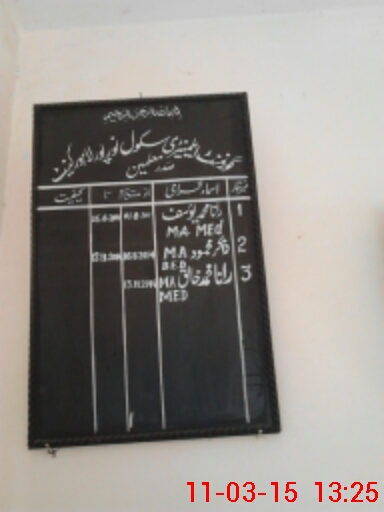 بسم اللہ الرحمن الرحیم
گورنمنٹ ایلیمنٹری سکول نور پور لاہور کینٹ
صدر معلمین
نمبر شمار اسماء گرامی از تا کیفیت
1 رانا محمد یوسف
MA MEd
2 ڈاکٹر محمود MA
BED
3 رانا محمد خالق MA
MED
11-03-15 13:25